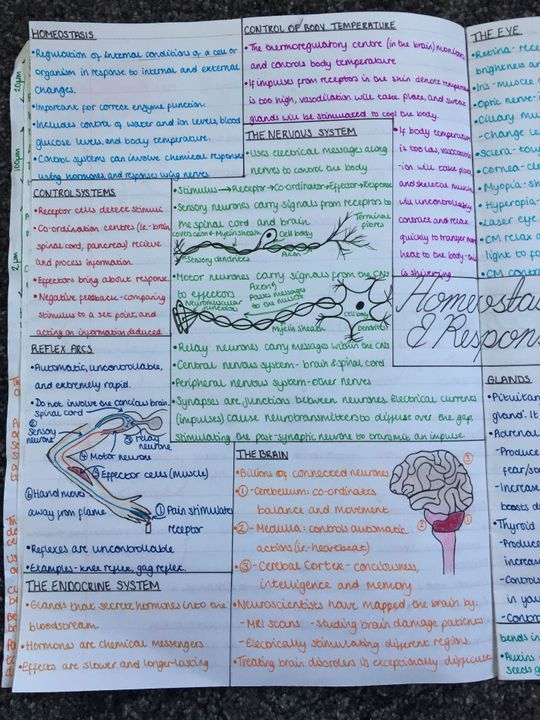 HOMEOSTASIS
• Regulation of internal conditions of a cell or
organism in response to internal and external
changes.
• Important for correct enzyme function.
• Includes control of water and ion levels, blood
glucose levels and body temperature.
• Control systems can involve chemical responses
using hormones and responses using nerves.
CONTROL OF BODY TEMPERATURE
• The thermoregulatory centre (in the brain) monitors
and controls body temperature
• If impulses from receptors in the skin denote temp
is too high, vasodilation will take place, and sweat
glands will be stimulated to cool the body.
• If body temperature
is too low, vasoconstrict
-ion will take place
and skeletal muscles
will uncontrollably
contract and relax
quickly to transfer more
heat to the body - this
is shivering
THE NERVOUS SYSTEM
• Uses electrical messages along
nerves to control the body.
• Stimulus → Receptor → Co-ordinator → Effector → Response
• Sensory neurones carry signals from receptors to
the spinal cord and brain
Terminal
fibres
Myelin sheath
Cell body
Sensory dendrites
Axon
• Motor neurones carry signals from the CNS
to effectors
Axon
Passes messages
to the muscle
Neuromuscular
junction
Cell body
Myelin sheath
Dendrites
• Relay neurones carry messages within the CNS
• Central nervous system - brain & spinal cord
• Peripheral nervous system - other nerves
• Synapses are junctions between neurones. Electrical currents
(impulses) cause neurotransmitters to diffuse over the gap,
stimulating the post-synaptic neurone to transmit an impulse.
CONTROL SYSTEMS
• Receptor cells detect stimuli
• Co-ordination centres (i.e. - brain,
spinal cord, pancreas) recieve
and process information.
• Effectors bring about response
• Negative feedback - comparing
stimulus to a set point, and
acting on information deduced
REFLEX ARCS
• Automatic, uncontrollable,
and extremely rapid.
• Do not involve the concious brain.
spinal cord
② Sensory
neurone
③ relay
neurone
④ Motor neurone
⑤ Effector cells (muscle)
⑥ Hand moves
away from flame
① Pain stimulates
receptor
• Reflexes are uncontrollable
• Examples - knee reflex, gag reflex.
THE ENDOCRINE SYSTEM
• Glands that secrete hormones into the
bloodstream
• Hormones are chemical messengers
• Effects are slower and longer-lasting
THE BRAIN
• Billions of connected neurones
① - Cerebellum: co-ordinates
balance and movement
② - Medulla: controls automatic
actions (i.e. - heartbeat)
③ - Cerebral Cortex - conciousness,
intelligence and memory
• Neuroscientists have mapped the brain by:
- MRI scans - studing brain damage patients
- Electrically stimulating different regions.
• Treating brain disorders is exceptionally difficult
③
②
①
THE EYE
• Retina - rece
brightness an
• Iris - muscle
• Optic nerve -
• Ciliary mus
- change le
• Sclera - tou
• Cornea - cle
• Myopia - sh
• Hyperopia -
• Laser eye
• CM relax
light to fo
• CM contra
Homeostas
& Respon
GLANDS
• Pituitar
gland'. It
• Adrenal
- Produce
fear/st
- Increase
boosts d
• Thyroid
- Produce
increas
- Controls
in you
- Contro
bends in
• Auxins
seeds g